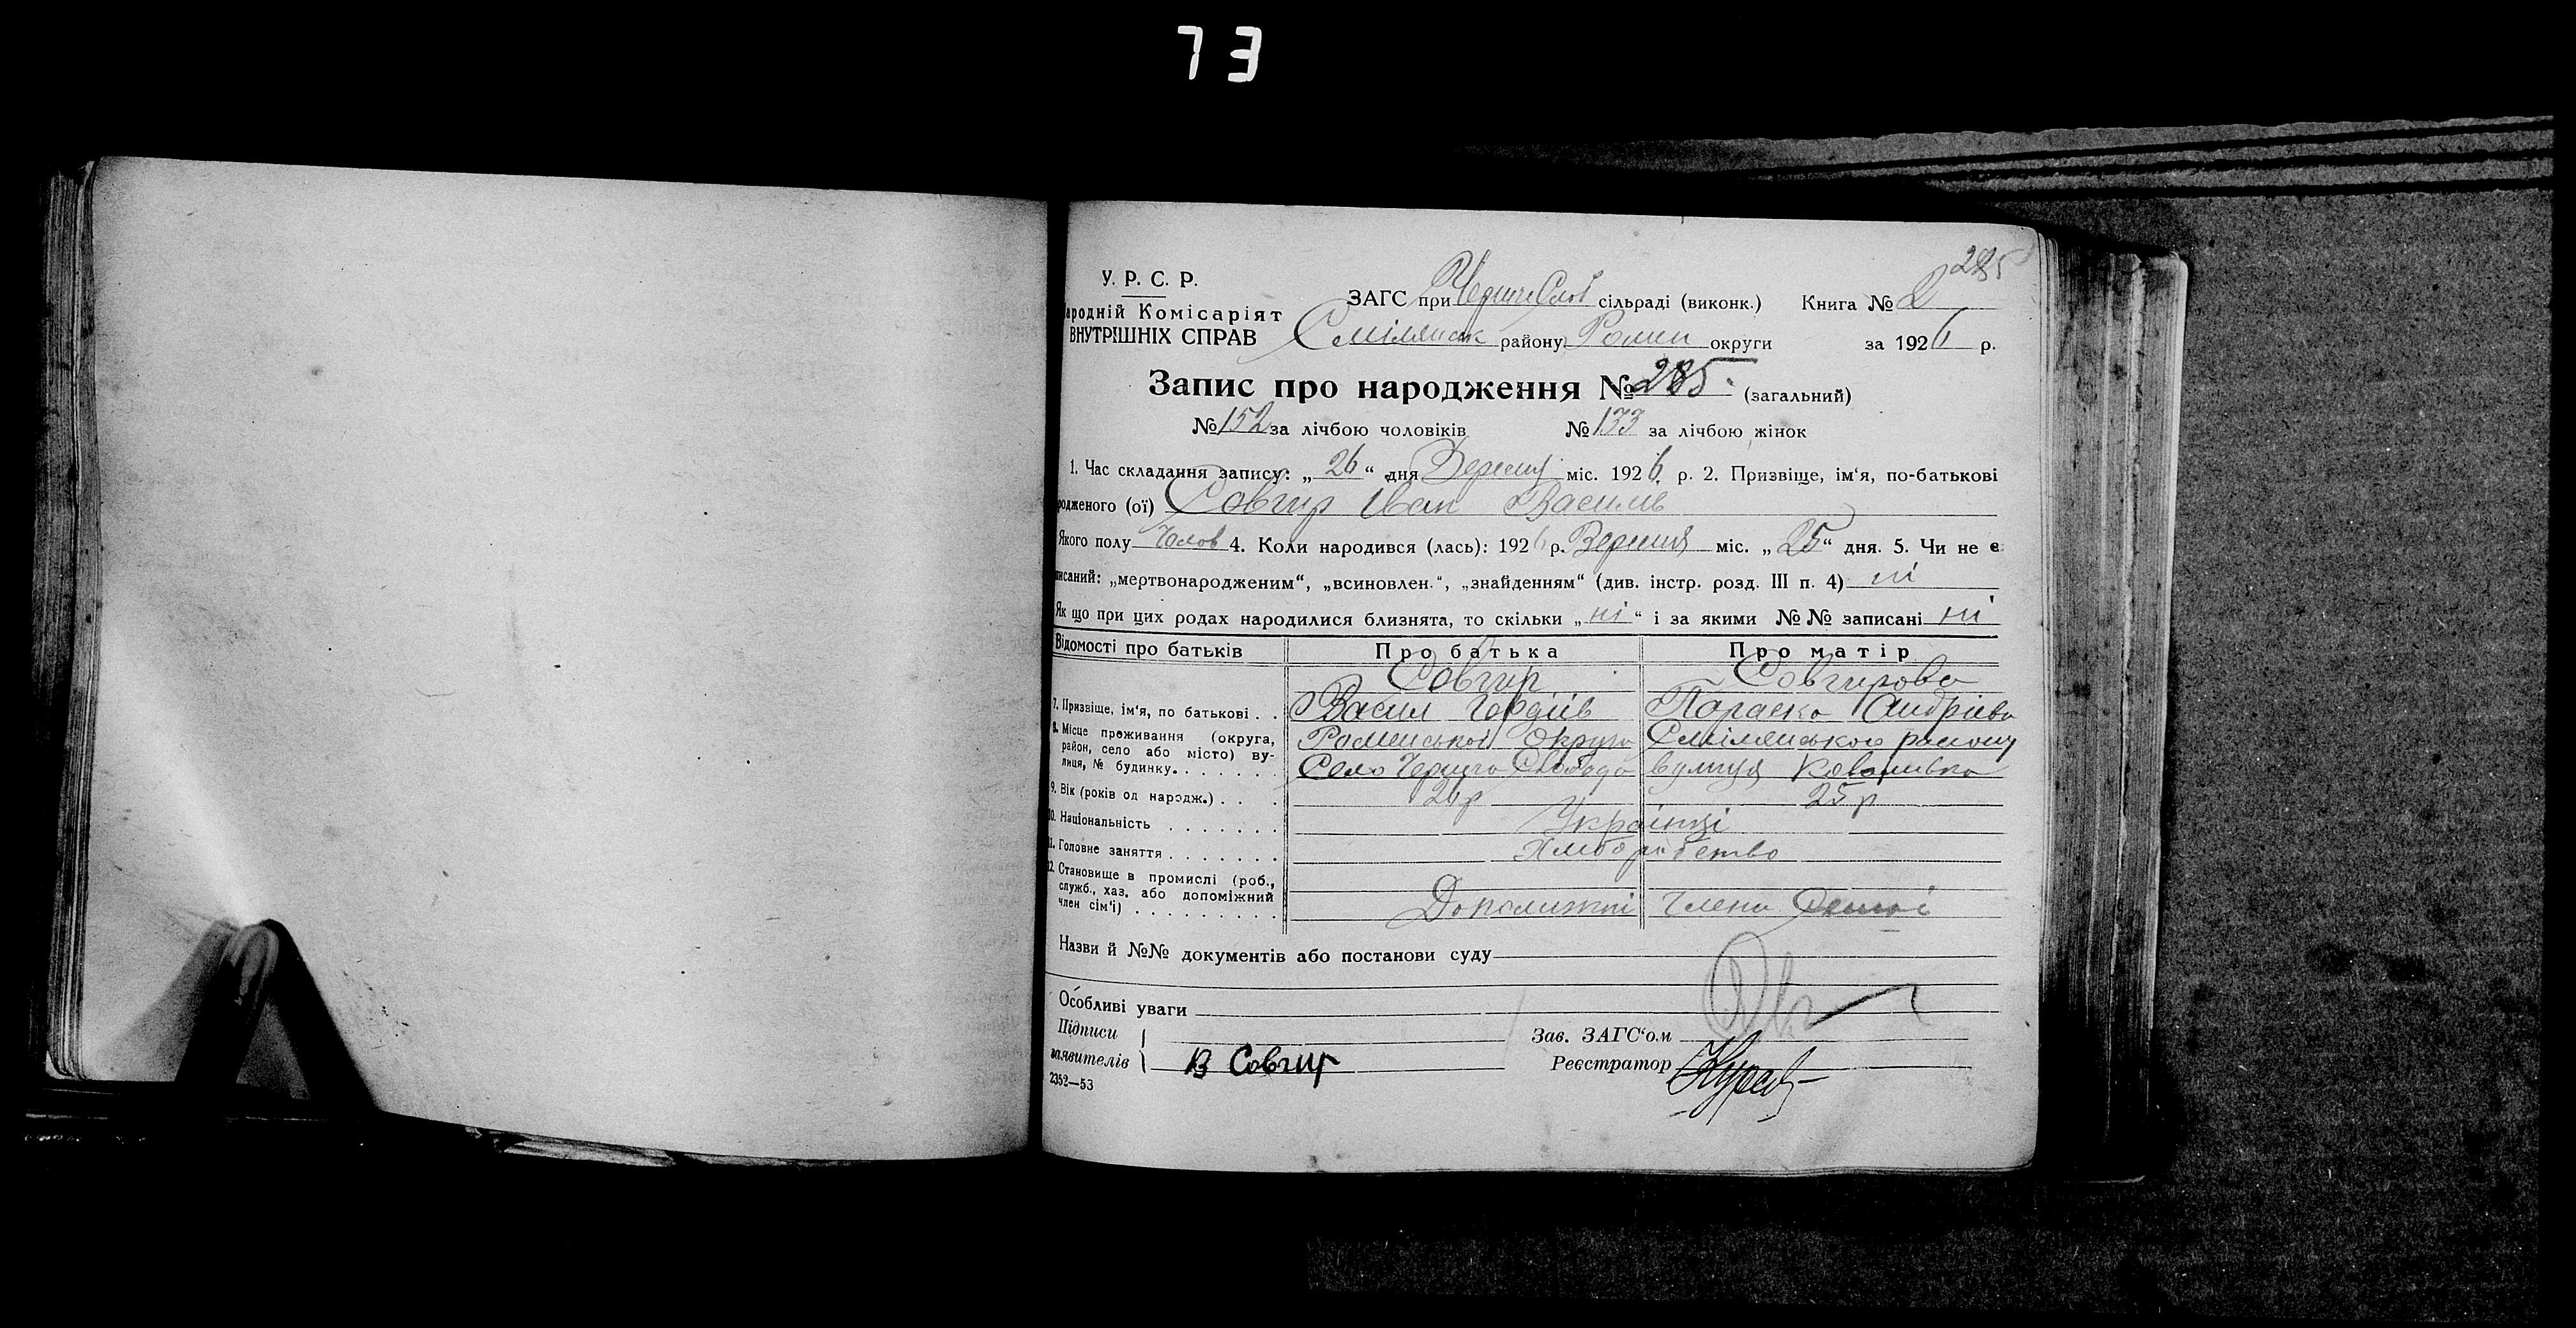 73
285
У. Р. С. Р.
ародній Комісаріят
ВНУТРІШНІХ СПРАВ
ЗАГС при сільраді (виконк.) Книга № 2
Смілянськ району Ромен округи за 1926 р.
Запис про народження № 285. (загальний)
№ 152 за лічбою чоловіків № 133 за лічбою жінок
1. Час складання запису: „ 26 “ дня Вересня міс. 1926 р. 2. Призвіще, ім‘я, по-батькові
родженого (ої) Совгир Иван Василів
Якого полу Чолов 4. Коли народився (лась): 1926 р. Вересня міс. „ 25 “ дня. 5. Чи не є
писаний: „мертвонародженим“, „всиновлен.“, „знайденням“ (див. інстр. розд. III п. 4) ні
Як що при цих родах народилися близнята, то скільки „ ні “ і за якими №№ записані ні
Відомості про батьків Про батька Про матір
Совгир Совгирова
7. Призвіще, ім‘я, по батькові . . Васил Гордіїв Параска Андрієва
8. Місце проживання (округа, район, село або місто) вулиця, № будинку. Роменської Округи Смілянського району
Село Черуча Слобода вулиця
9. Вік (років од народж.) . . . 26 р 25 р
10. Національність . . . . . . . Українці
11. Головне заняття . . . . . . . Хліборобство
12. Становище в промислі (роб.,
служб., хаз. або допоміжний
член сім‘ї) . . . . . . . . . . Допоміжні члени
Назви й №№ документів або постанови суду
Особливі уваги
Підписи
заявителів В Совгир
Зав. ЗАГС‘ом
Реєстратор
2352—53